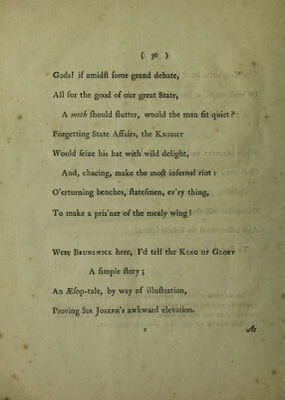 ( 36 )
Gods! if amidſt ſome grand debate,
All for the good of our great State,
A moth ſhould flutter, would the man ſit quiet?
Forgetting State Affairs, the KNIGHT
Would ſeize his hat with wild delight,
And, chacing, make the moſt infernal riot:
O'erturning benches, ſtateſmen, ev'ry thing,
To make a pris'ner of the mealy wing!
Were BRUNSWICK here, I'd tell the KING OF GLORY
A ſimple ſtory;
An Æſop-tale, by way of illuſtration,
Proving SIR JOSEPH's awkward elevation.
As